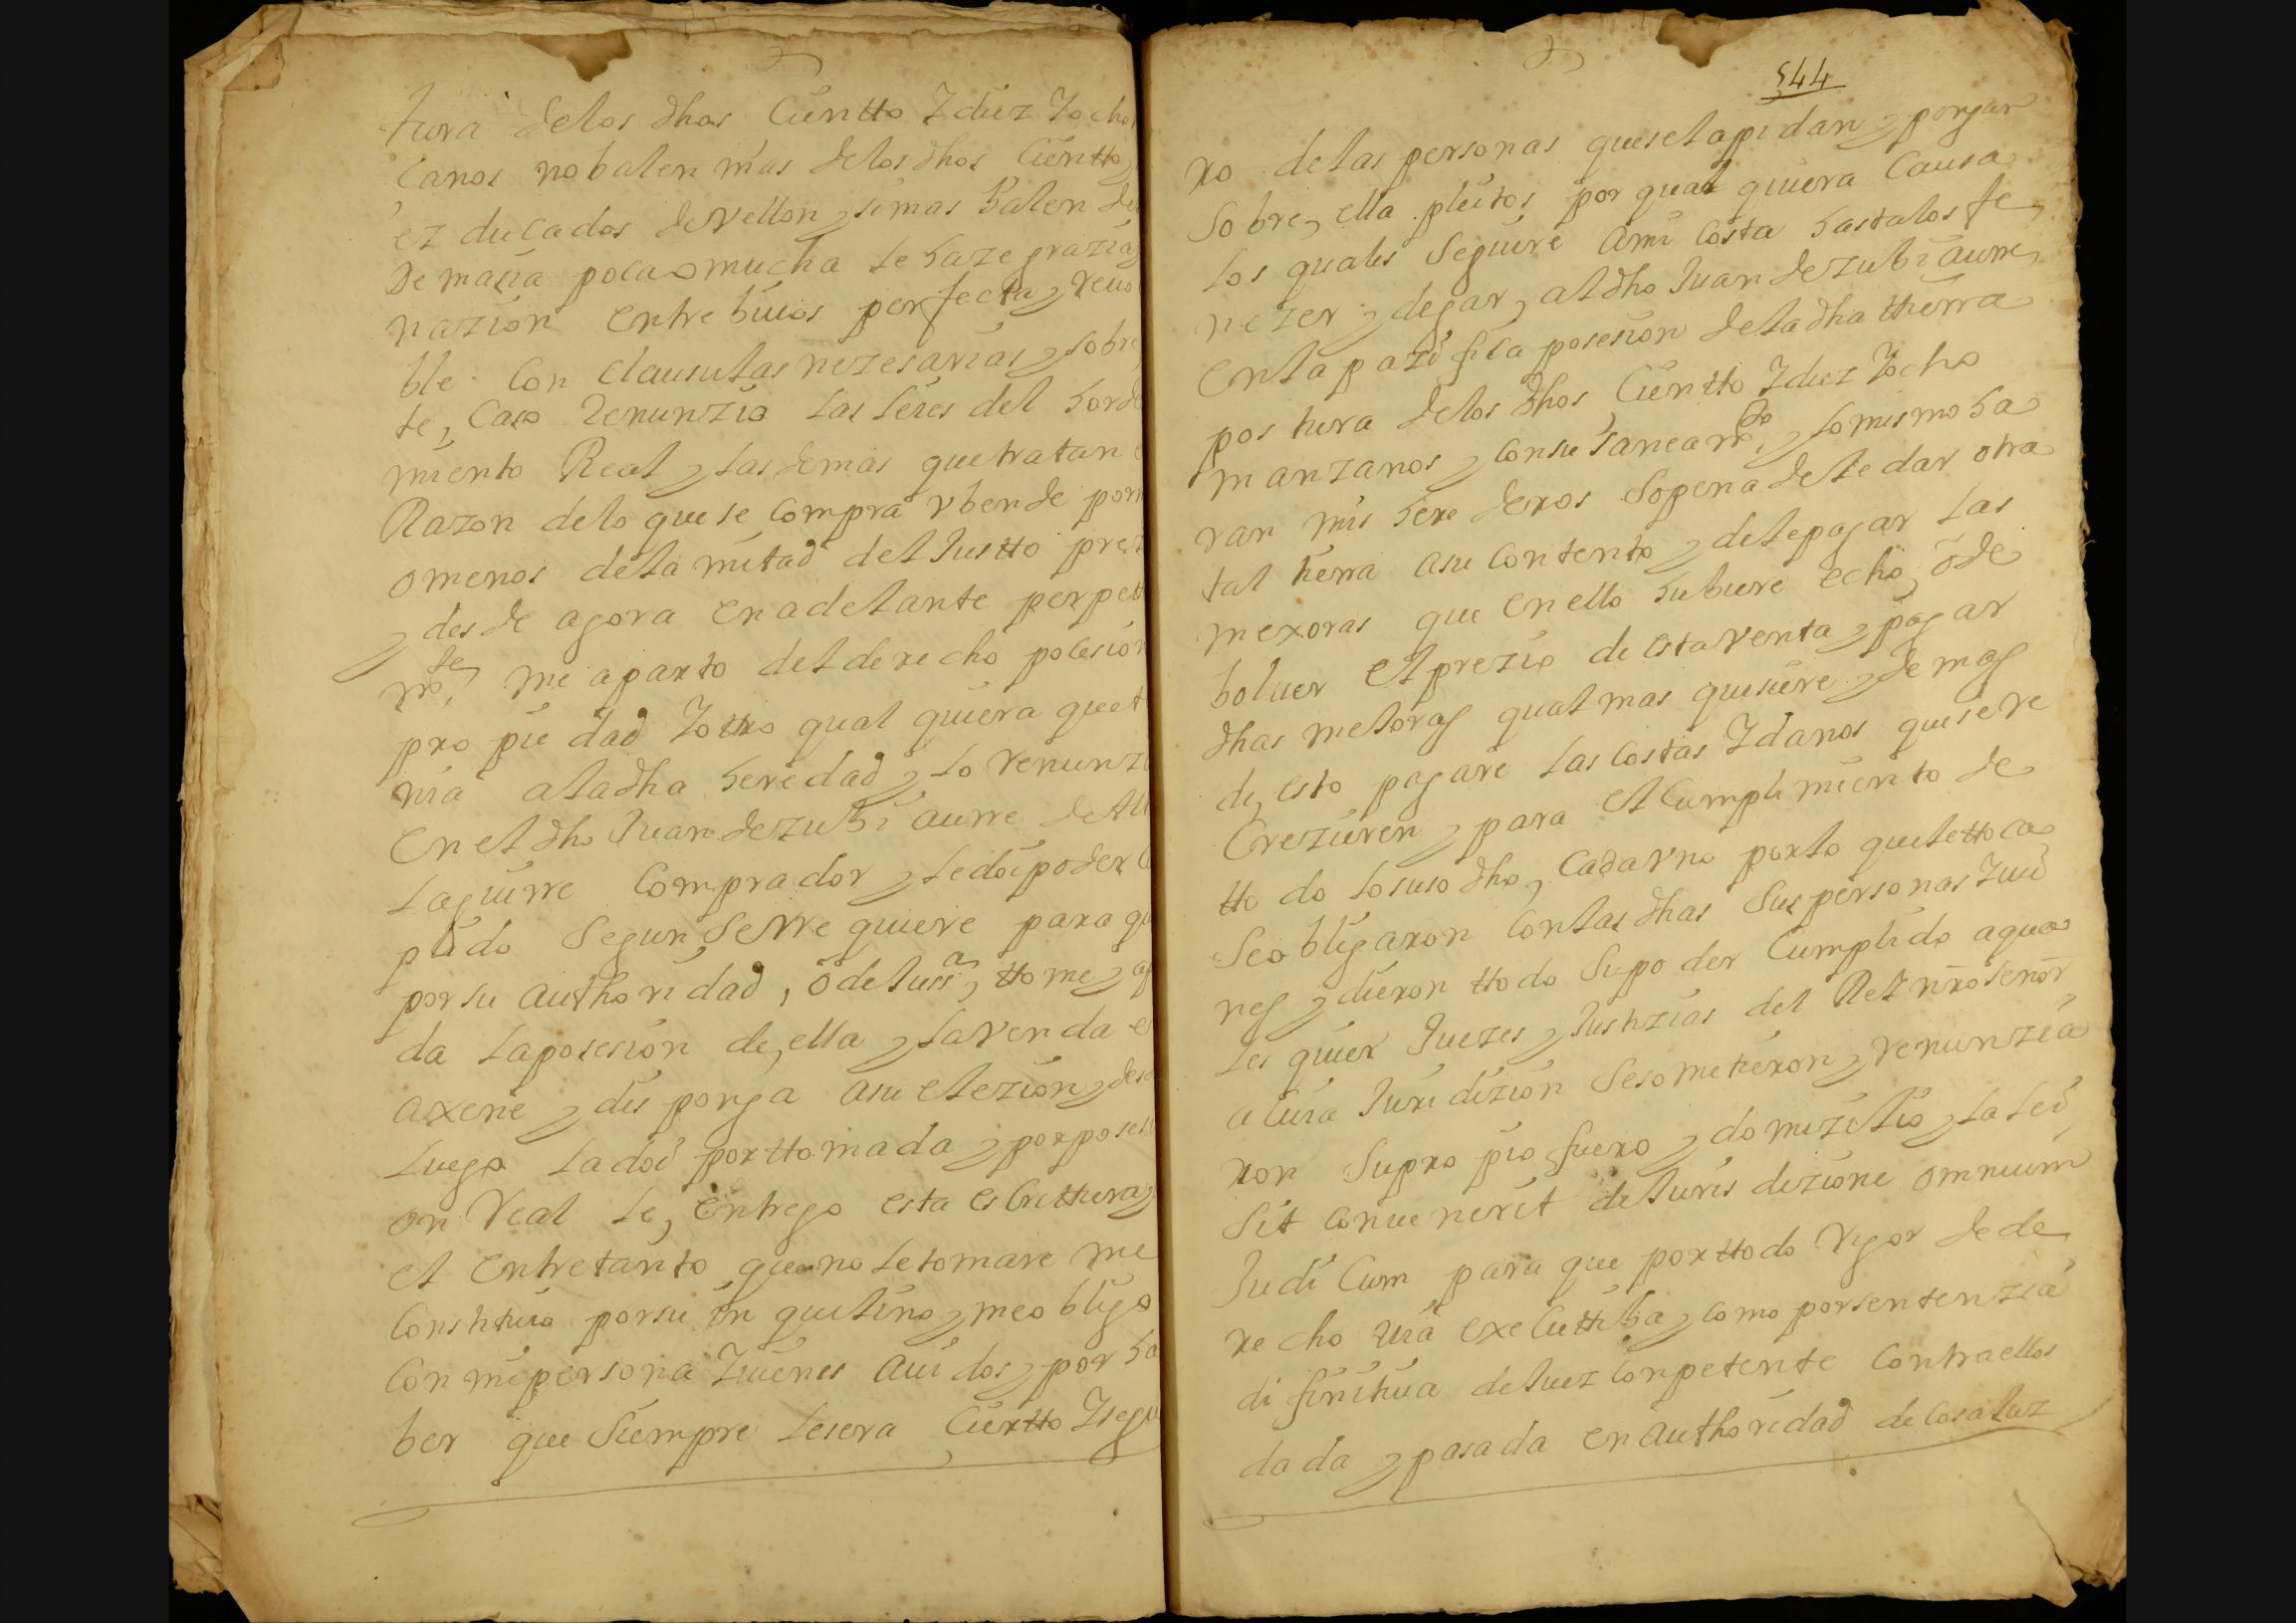 tura delos dhos Ciento Y diez Y ocho
Canos no balen mas delos dhos Ciento
ez ducados de Vellon y si mas balen de
Demasia poca o mucha le haze grazia
nazion entre biuos perfecta y reuo
ble con clausulas nezesarias y sobre
te, Caso Renunzio las leies del horde
miento Real y las demas que tratan
Razon delo que se compra v bende por
o menos dela mitad del Justto prez
y desde agora en adelante perpett
mte, me aparto del derecho posesion
propiedad Y ottro qual quiera que t
nia ala dha heredad y lo renunzi
En el dho Juan de zubiaurre de Al
laguirre Comprador y le doi poder C
plido Segun Se rrequiere para q
por su authoridad, o de Jussa, ttome y a
da la posesion de, ella y la venda e
axene y disponga a su elezion y des
luego la doi por ttomada y por poses
on Real le, entrego esta escrittura
el Entretanto que no le tomare me
Constituio por su in quilino y me obligo
Con mi persona Y uienes auidos y por ha
ber que Siempre le sera Ciertto Y segu
544
ro delas personas que se la pidan y pongan
Sobre, ella pleitos por qual quiera Causa
los quales Seguire a mi costa hasta los fe
nezer y dejar, al dho Juan de zubiaurre,
En la pazifica posesion dela dha tierra
postura delos dhos Ciento Y diez Y ocho
manzanos y con su saneamto, y lo mismo ha
ran mis herederos Sopena de le dar otra
tal tierra a su contento y de le pagar las
mexoras que en ello hubiere echo, o de
boluer el prezio de esta venta y pagar
dhas mejoras qual mas quisiere y demas
de, esto pagare las costas Y danos que se re
Crezieren y para el Cumplimiento de
tto do lo suso dho, Cada Vno por lo que le ttoca
Se obligaron Con las dhas Sus personas Y uie
nes y dieron ttodo Su poder Cumplido a qua
les quier Juezes y Justizias del Rey nro señor
a Cuia Juridizion Se sometieron y renunzia
ron Su propio fuero y domizilio y la lei
Sit conuenerit de Juris dizione omnium
Judi Cum para que por ttodo Rigor de de
recho Via executtiba y como por sentenzia
difinitiua de Juez Conpetente Contra ellos
dada y pasada en authoridad de cosa Juz